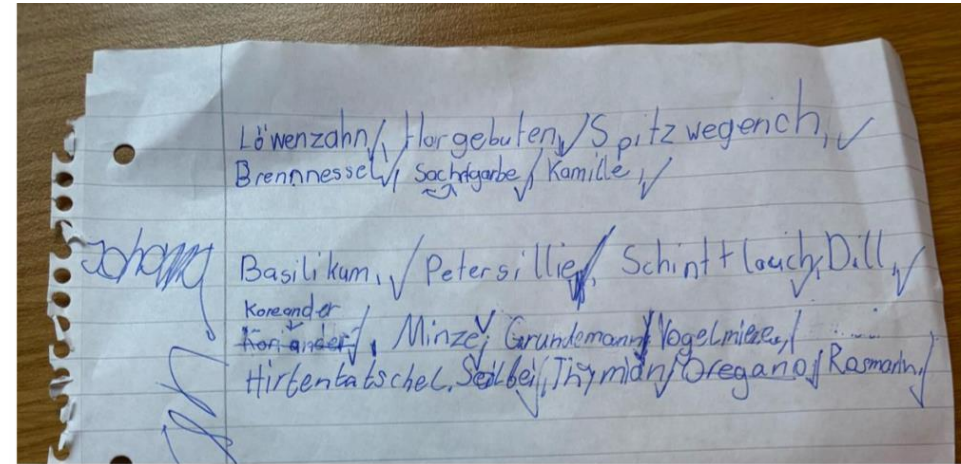 Löwenzahn, Hargebuten, Spitzwegerich,
Brennnessel, Sachfgarbe, Kamille,
Basilikum, Petersillie, Schinttlauch, Dill,
Koreander
Koriander, Minze, Grundemann, Vogelmiere,
Hirtentatschel, Seilbei, Thymian, Oregano, Rosmarin,